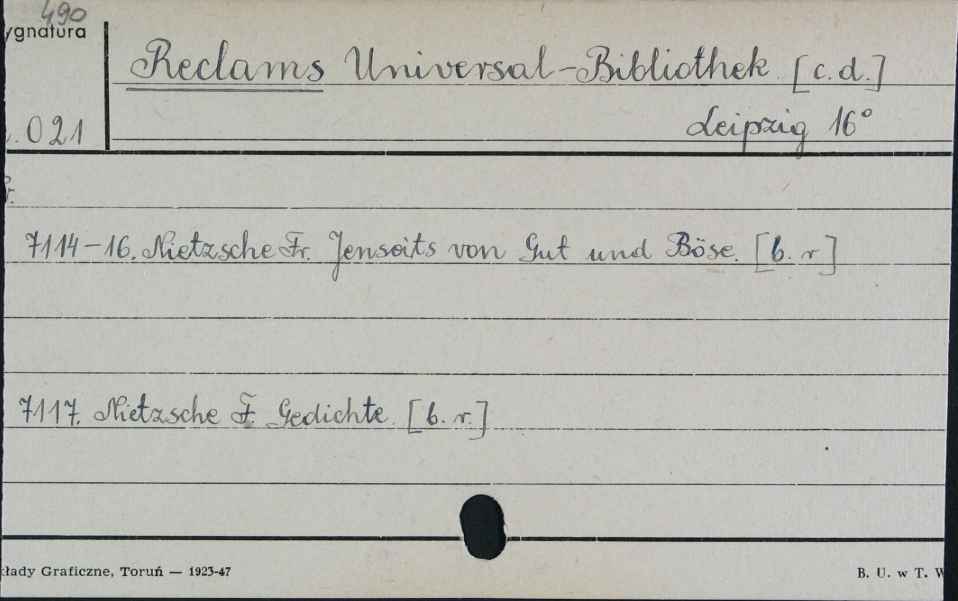 490
ygnatura
Reclams Universal-Bibliothek [c.d.]
021
Leipzig 16°
7114-16. Nietzsche Fr. Jenseits von Gut und Böse. [b. r]
7117. Nietzsche F. Gedichte. [b. r.]
kłady Graficzne, Toruń — 1923-47
B. U. w T. W